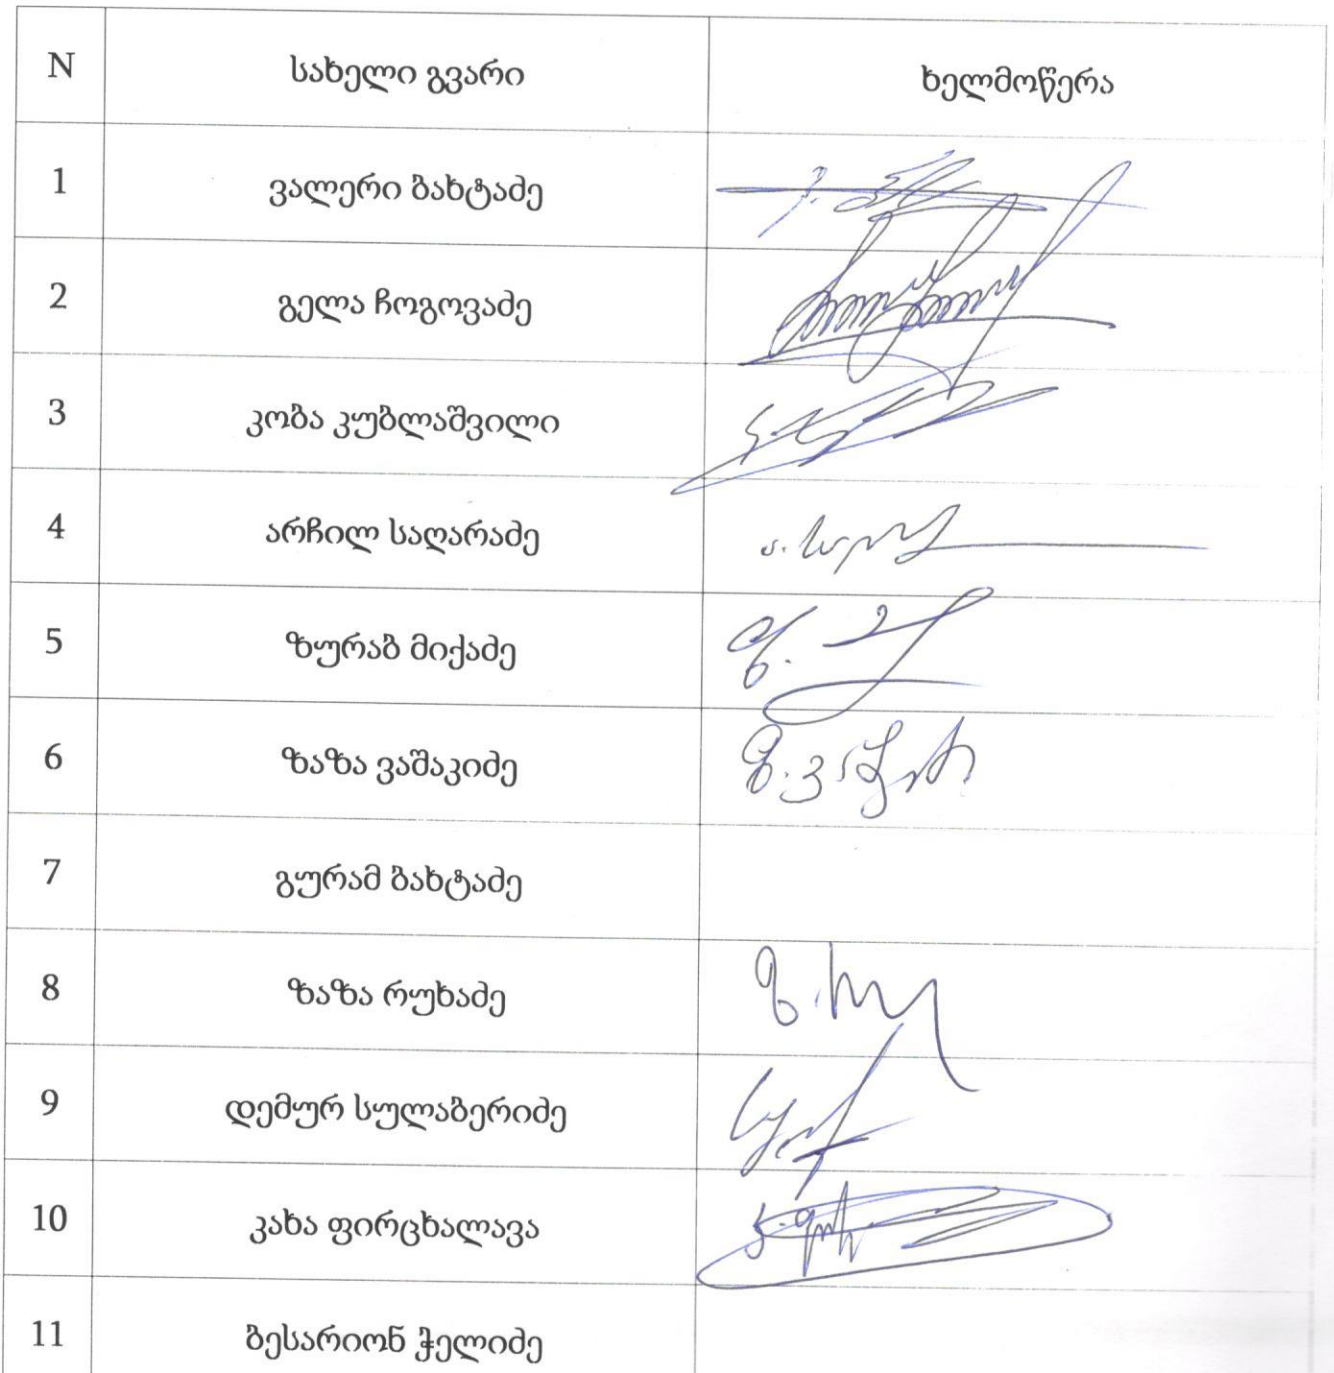 N სახელი გვარი ხელმოწერა
1 ვალერი ბახტაძე
2 გელა ჩოგოვაძე
3 კობა კუბლაშვილი
4 არჩილ საღარაძე
5 ზურაბ მიქაძე
6 ზაზა ვაშაკიძე
7 გურამ ბახტაძე
8 ზაზა რუხაძე
9 დემურ სულაბერიძე
10 კახა ფირცხალავა
11 ბესარიონ ჭელიძე